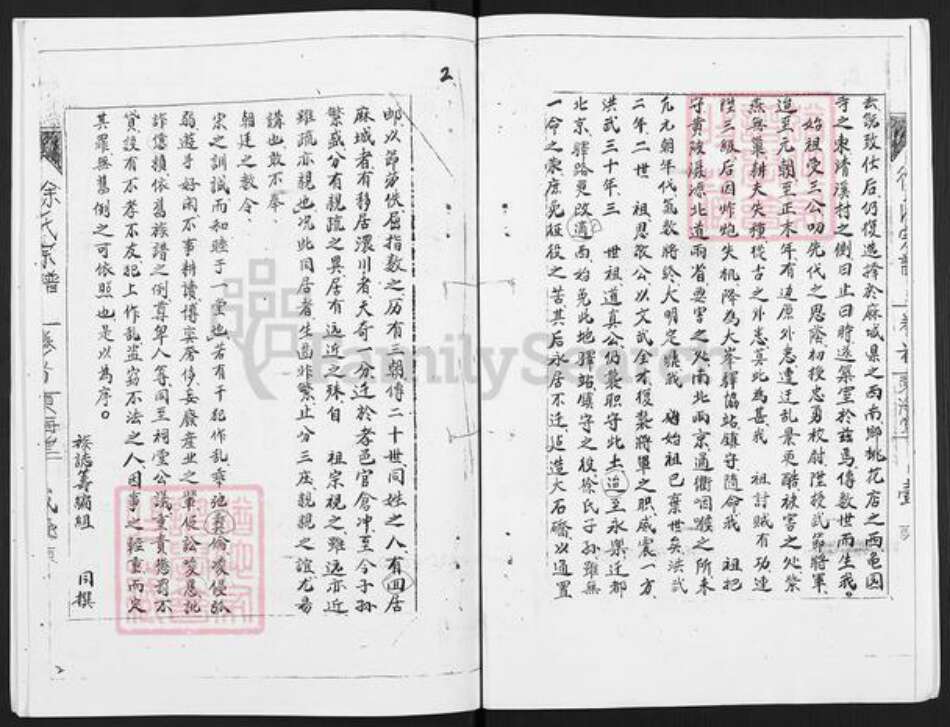 去第致仕后仍復选择於麻城県之西南鄉桃花店之西龟园
寺之東清溪村之側曰止曰時遂築室於茲焉傳数世而生我。
始祖受三公叨先代之恩蔭初授忠勇校尉陞授武節將軍
迨至元朝至正末年有边原外患遭迁乱景更酷被害之处柴
燕無草耕夫失種從古之外患莫此為甚我 祖討賊有功連
陞三級后因炸炮失机降為大峯驛協站鎮守隨命我 祖把
守黄陂滠源北道两省要害之处南北两京通衢咽喉之所未
几元朝年代氣数將終大明定鼎我 始祖已棄世矣洪武
二年二世 祖思敬公以文武全才復襲將軍之职威震一方
洪武三十年三 世祖道真公仍襲职守此土迨至永樂迁都
北京驛路更改適西始免此地驛站鎮守之役徐氏子孙雖無
一命之榮庶免征役之苦其后永居不迁造大石磚以通置
2
郵以節劳佚屈指数之历有三朝傳二十世同姓之人有回居
麻城者有移居濃川者天奇一分迁於孝邑官倉冲至今子孙
繁盛分有親疏之異居有远近之殊自 祖宗視之雖远亦近
雖疏亦親也况此同居者生齒非繁止分三座親親之誼尤易
講也敢不奉
朝廷之教令
宗之訓誡而和睦于一堂也若有干犯作乱乘弛彝倫凌侵孤
弱遊手好闲不事耕讀博奕廢産业之輩
依舊族譜之例尊卑人等同至祠堂公議重責惩罰不
貸設有不孝不友犯上作乱盗窃不法之人因事之輕重而定
其罪無舊例之可依照也是以為序。
族誌籌編組 同撰
徐氏宗譜
2
FamilySearch